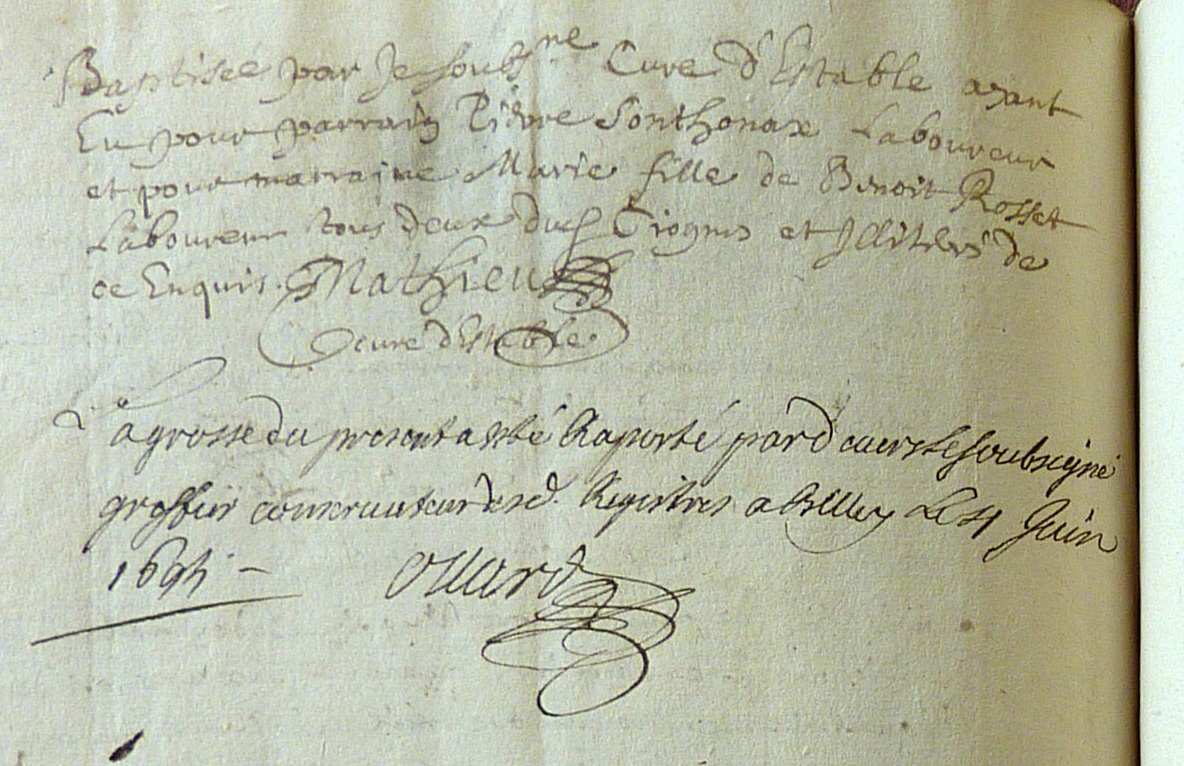 Baptisée par Je soubsne Cure d'Estable ayant
Eu pour parrain Pierre Sonthonax Laboureur
et pour marraine Marie fille de Benoit Rosset
Laboureur tous deux dud Ciognis et Illiterés de
ce Enquis. Mathieu
cure d'Estable.
La grosse du present a esté Raporté par devers Le soubsigné
greffier conservateur desd. Registres a Belley Le 4 Juin
1694